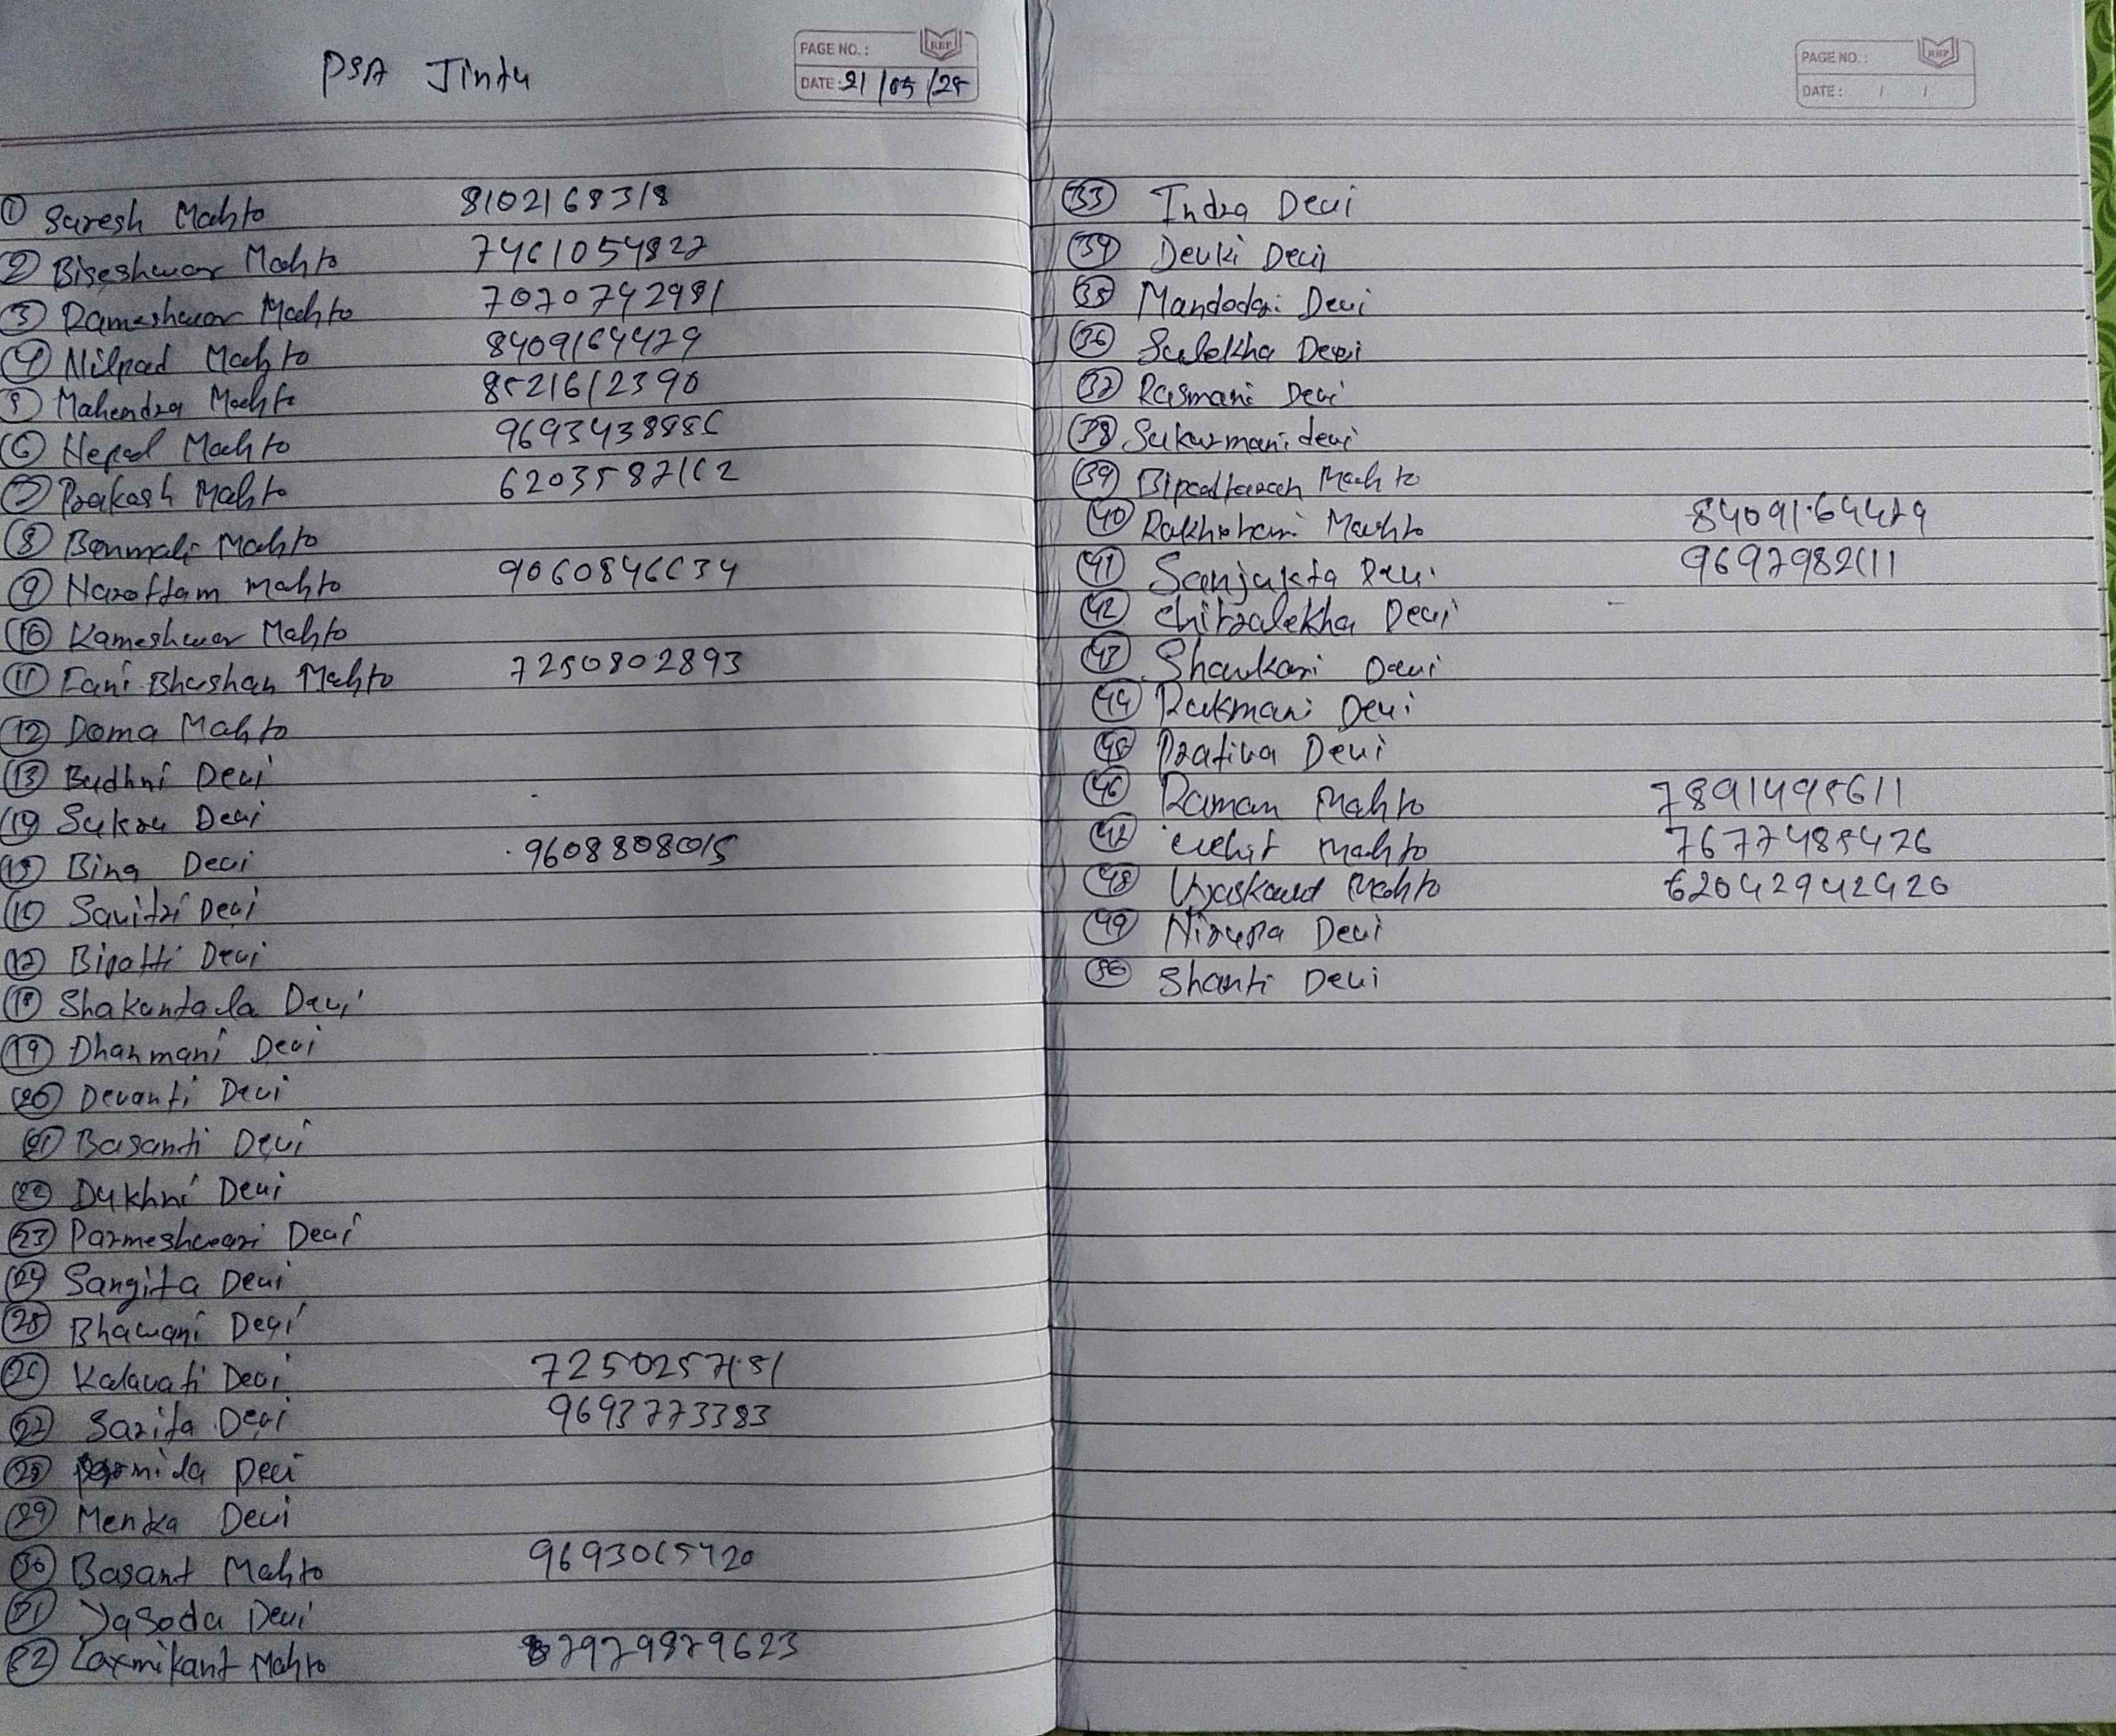 PSA Jintu
PAGE NO.: RBP
DATE: 21/05/25
① Suresh Mahto 8102168318
② Biseshwar Mahto 7461054827
③ Rameshwar Mahto 7070742981
④ Nilpad Mahto 8409164479
⑤ Mahendra Mahto 8521612390
⑥ Nepal Mahto 9693438886
⑦ Prakash Mahto 6203587162
⑧ Bonmali Mahto
⑨ Narottam mahto 9060846634
⑩ Kameshwar Mahto
⑪ Fani Bhushan Mahto 7250802893
⑫ Doma Mahto
⑬ Budhni Devi
⑭ Sukru Devi
⑮ Bina Devi 9608808015
⑯ Savitri Devi
⑰ Bipatti Devi
⑱ Shakuntala Devi
⑲ Dhanmani Devi
⑳ Devanti Devi
㉑ Basanti Devi
㉒ Dukhni Devi
㉓ Parmeshwari Devi
㉔ Sangita Devi
㉕ Bhawani Devi
㉖ Kalavati Devi
㉗ Sarita Devi 9693773383
㉘ Devi
㉙ Menka Devi
㉚ Basant Mahto 9693065720
㉛ Yasoda Devi
㉜ Laxmikant Mahto 7979879623
PAGE NO.: RBP
DATE: / /
㉝ Indra Devi
㉞ Devki Devi
㉟ Mandodri Devi
㊱ Sulekha Devi
㊲ Rasmani Devi
㊳ Sukurmani devi
㊴ Mahto
㊵ Mahto 8409164479
㊶ Sanjukta Devi 9697982611
㊷ Chitralekha Devi
㊸ Shankari Devi
㊹ Rukmani Devi
㊺ Prativa Devi
㊻ Raman Mahto 7891495611
㊼ mahto 7677485426
㊽ Mahto 62042942420
㊾ Nirupa Devi
㊿ Shanti Devi